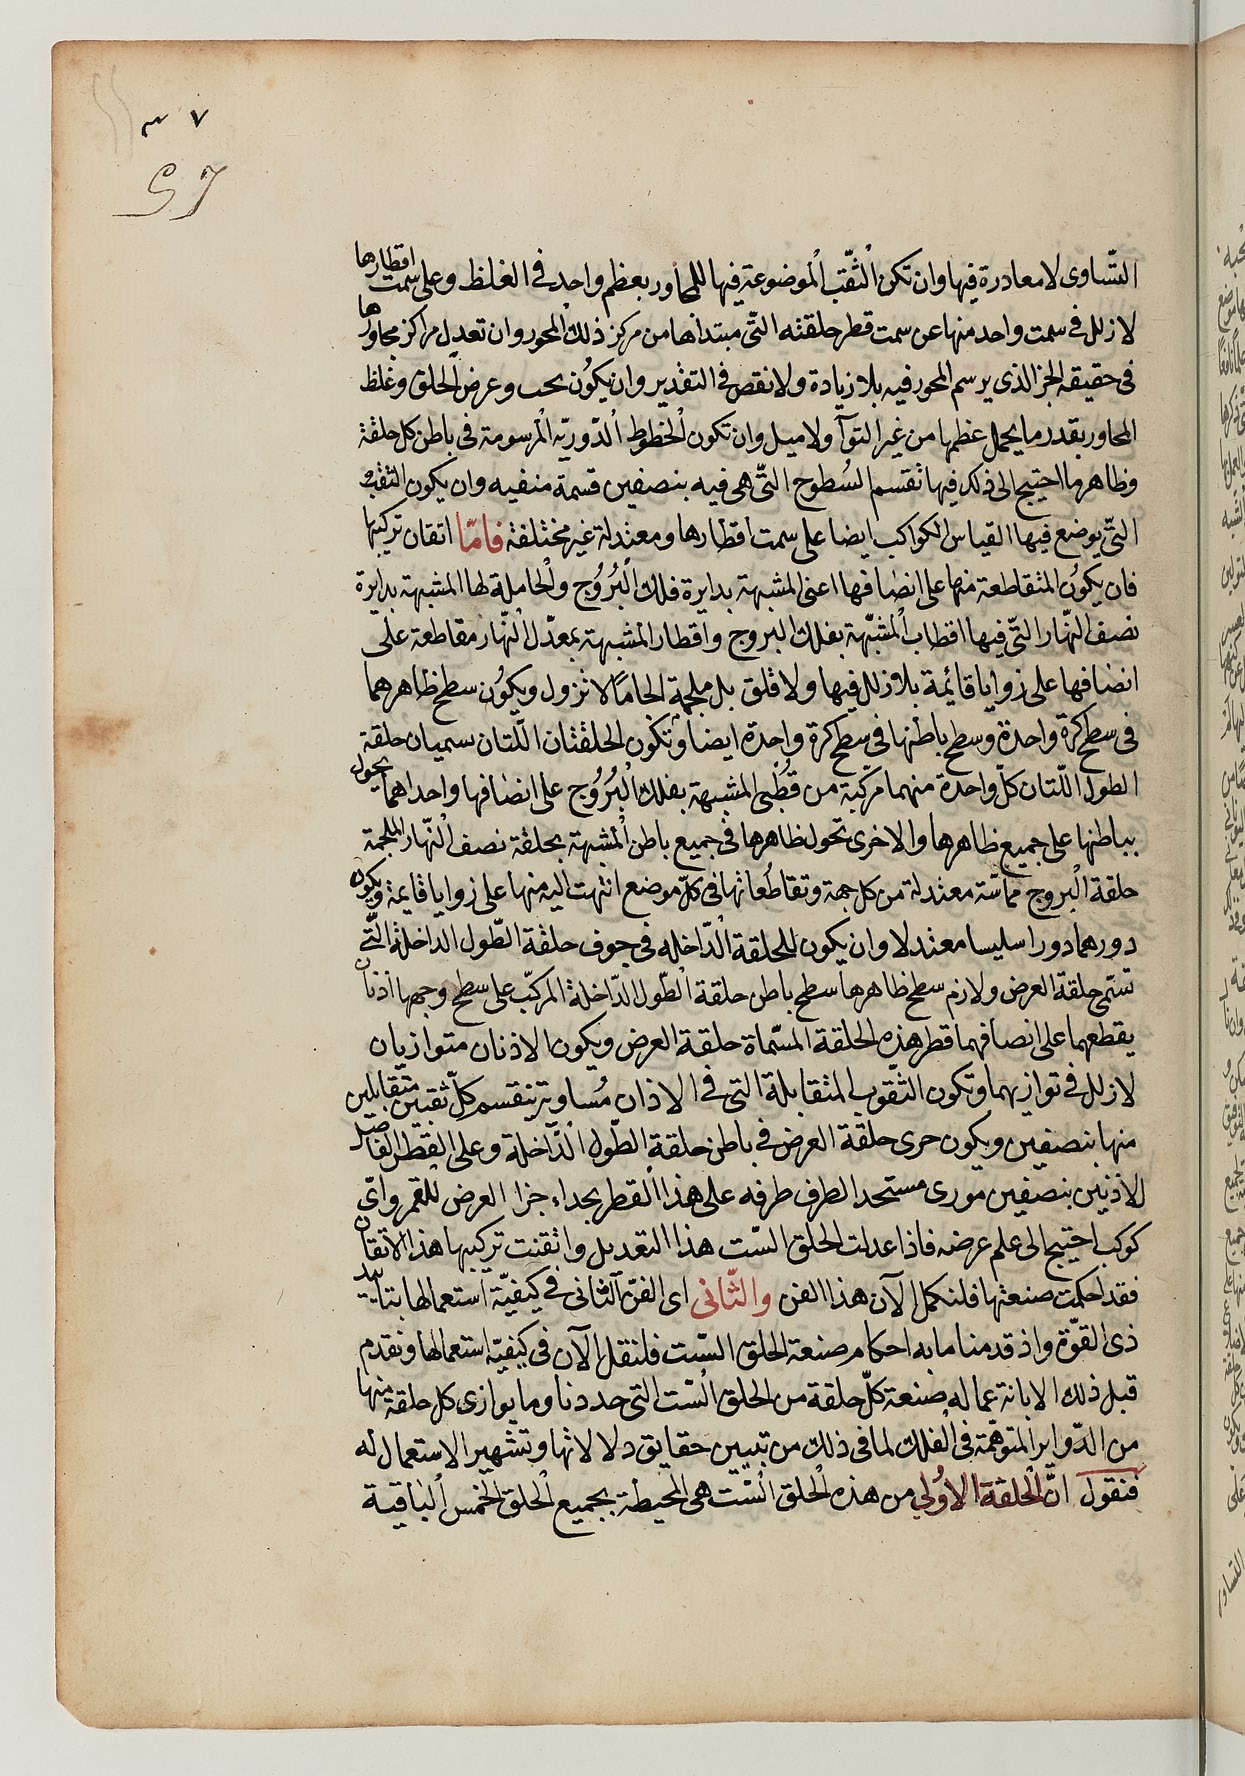 ٣٧
التّساوى لا معادرة فيها وان تكن الثّقب الموضوعة فيها للمحاور بعظم واحد فى الغلظ وعلى سمت اقطارها
لا زلل فى سمت واحد منها عن سمت قطر حلقته التّى مبتداها من مركز ذلك المحور وان تعدل مراكز محاورها
فى حقيقة الجز الذى يرسم المحور فيه بلا زيادة ولا نقص فى التقدير وان يكون بحب وعرض الحلق وغلظ
المحاور بقدر ما يحمل عظمها من غير التوآ ولا ميل وان تكون الخطوط الدّوريّه المرسومة فى باطن كل حلقة
وظاهر ما احتيج الى ذلك فيها تقسم السُطوح التّى هى فيه بنصفين قسمة منفيه وان يكون الثقب
التّى يوضع فيها القياس الكواكب ايضا على سمت اقطارها ومعتدلة غير مختلفة فامّا اتقان تركيبها
فان يكوُن المتقاطعة منها على انصافها اعنى المشبهة بدايرة فلك البُرُوج والحاملة لها المشبهة بدايرة
نصف النّهار التّى فيها اقطاب المشبّهة بفلك البروج واقطار المشبهة بمعدّل النّهار مقاطعة على
انصافها على زوايا قائمة بلا زلل فيها ولا قلق بل ملجمة الحاما لا تزول ويكوُن سطح ظاهرهما
فى سطح كرة واحدة وسطح باطنها فى سطح كرة واحدة ايضا وتكون الحلقتان اللّتان تسميان حلقة
الطول اللّتان كلّ واحدة منهما مركبة من قُطبى المشبهة بفلك البُرُوج على انصافها واحداهما يحول
بباطنها على جميع ظاهرها والاخرى تحول ظاهرها فى جميع باطن المشبهة بحلقة نصف النّهار الملجمة
حلقة البروج مماسّة معتدلة من كل جهة وتقاطعاتها فى كلّ موضع انتهت اليه منها على زوايا قايمة ويكون
دورهما دورا سليسا معتدلا وان يكون للحلقة الدّاخله فى جوف حلقة الطّول الداخلة التّى
تسمّى حلقة العرض ولازم سطح ظاهرها سطح باطن حلقة الطّول الدّاخلة المركّب على سطح وجهها اذنان
يقطعهما على انصافهما قطر هذه الحلقة المسّماة حلقة العرض ويكون الاذنان متوازيان
لا زلل فى توازيهما وتكون الثّقوب المتقابلة التى فى الاذان مُساوية تنقسم كلّ ثقبتين متقابلين
منها بنصفين ويكون حرى حلقة العرض فى باطن حلقة الطّول الدّاخلة وعلى القطر الفاصل
الاذنين بنصفين مورى مستحد الطرف طرفه على هذا القطر بحداء جزا العرض للقمر واىّ
كوكب احتيج الى علم عرضه فاذا عدلت الحلق السّت هذا التعديل واتقنت تركيبها هذا الاتقان
فقد احكمت صنعتها فلنكمل الآن هذا الفن والثّانى اى الفنّ الثانى فى كيفيّة استعمالها بتاييد
ذى القوّة واذ قدمنا ما به احكام صنعة الحلق السّت فلنقل الآن فى كيفيّة استعمالها ونقدم
قبل ذلك الابانة عما له صنعة كلّ حلقة من الحلق السّت التى حددنا وما يوازى كل حلقة منها
من الدّواير المتوهّمة فى الفلك لما فى ذلك من تبيين حقايق دلالاتها وتشهير الاستعمال له
فنقول انّ الحلقة الاوُلى من هذه الحلق السّت هى المحيطة بجميع الحلق الخمس الباقية